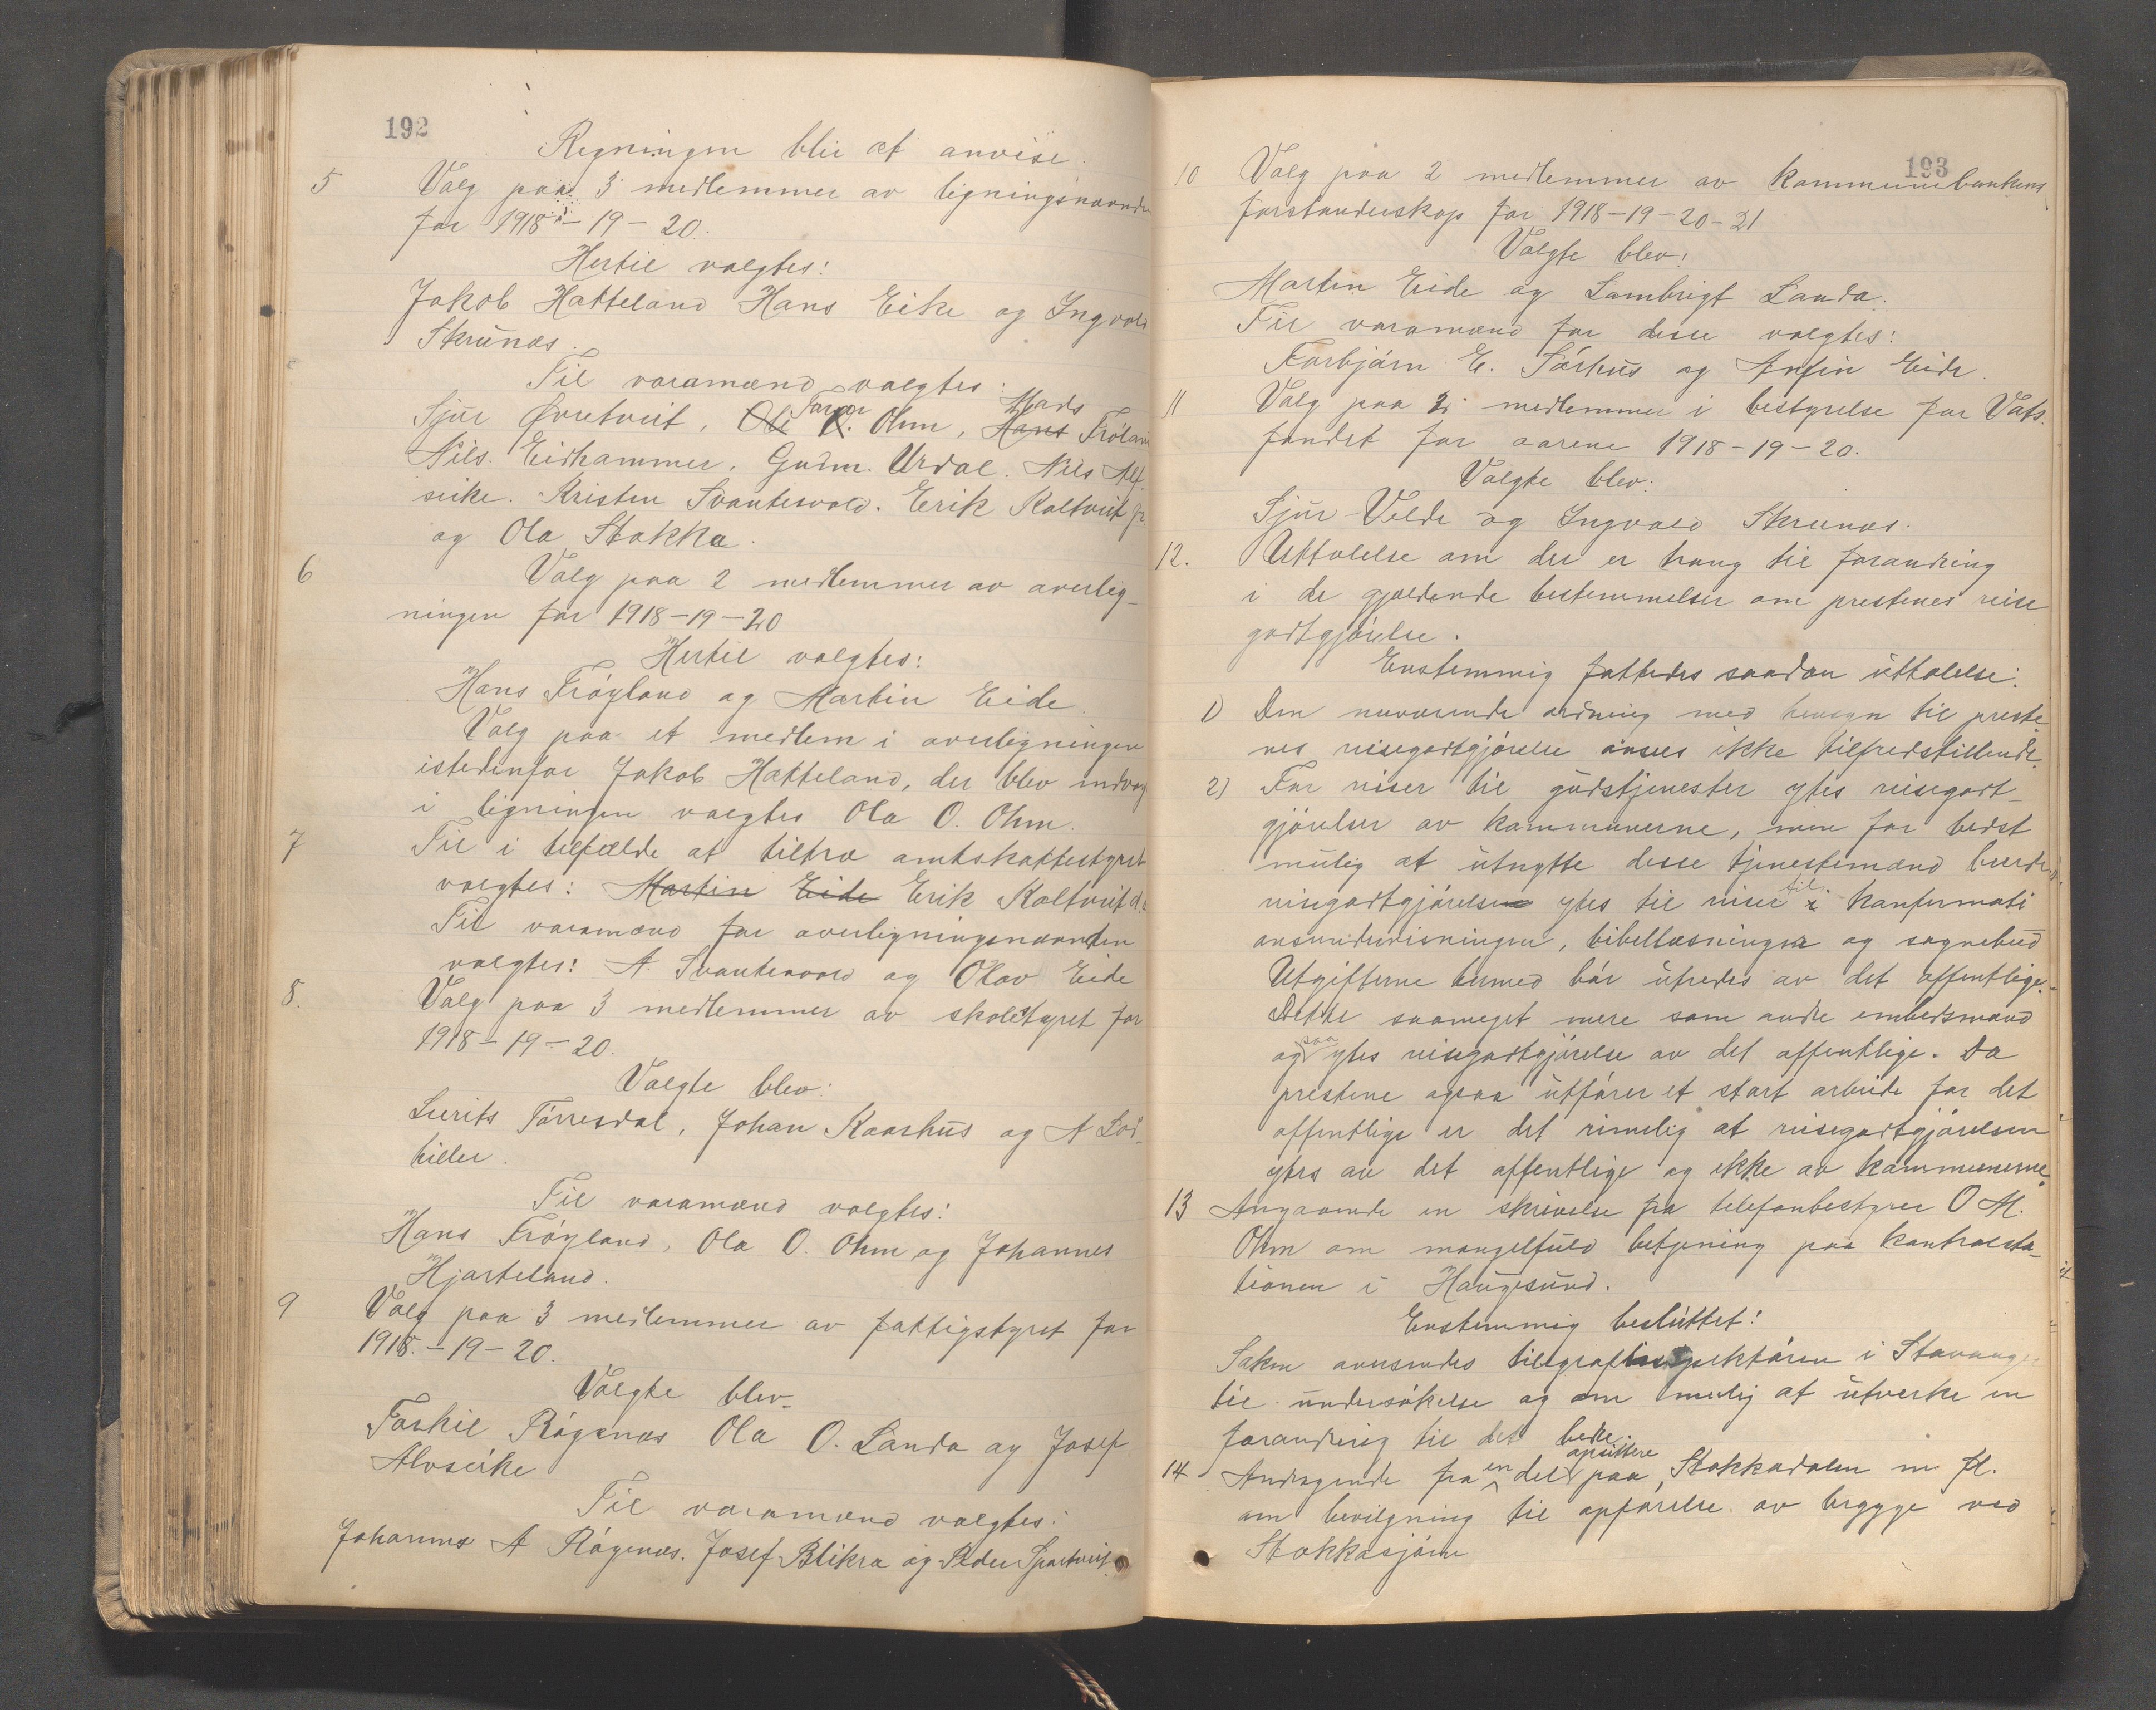 192
Regningen blir at anvise.
5 Valg paa 3 medlemmer av ligningsnævnden
for 1918 - 19 - 20.
Hertil valgtes:
Jakob Hatteland Hans Eike og Ingvald
Skrunæs.
Til varamænd valgtes:
Sjur Øvretveit, Ole O. Torger Ohm, Hans Mads Fröland
Nils Eidhammer, Gudm. Urdal. Nils Alf-
seike. Kristen Svantesvold. Erik Kaltveit
og Ola Stakka.
6 Valg paa 2 medlemmer av overlig-
ningen for 1918-19-20
Hertil valgtes:
Hans Fröyland og Martin Eide.
Valg paa et medlem i overligningen
istedenfor Jakob Hatteland, der blev indvalg
i ligningen valgtes Ola O. Ohm.
7 Til i tilfælde at tiltræ amtskattestyret
valgtes: Martin Eide Erik Kaltveit
Til varamænd for overligningsnævnden
valgtes: A. Svantesvold og Olav Eide
8. Valg paa 3 medlemmer av skolestyret for
1918 - 19 - 20.
Valgte blev:
Lurits Törresdal, Johan Kaarhus og A
Til varamænd valgtes:
Hans Fröyland, Ola O. Ohm og Johannes
Hjarteland.
9 Valg paa 3 medlemmer av fattigstyret for
1918. - 19 - 20.
Valgte blev
Torkil Rögenæs Ola O. Landa og Josef
Alvseike
Til varamænd valgtes:
Johannes A Rögenæs. Josef Blikra og Peder
193
10 Valg paa 2 medlemmer av Kommunebankens
forstanderskap for 1918-19-20-21
Valgte blev:
Martin Eide og Lambrigt Landa.
Til varamænd for disse valgtes:
Torbjörn E. Sörhus og Anfin Eide.
11 Valg paa 2 medlemmer i bestyrelse for Vats-
fondet for aarene 1918-19-20.
Valgte blev:
Sjur Velde og Ingvald Skrunæs.
12. Uttalelse om der er trang til forandring
i de gjældende bestemmelser om prestenes reise
godtgjörelse.
Enstemmig fattedes saadan uttalelse:
1) Den nuværende ordning med hensyn til preste
nes reisegodtgjörelse ansees ikke tilfredstillende.
2) For reiser til gudstjenester ytes reisegodt-
gjörelser av kommunerne, men for bedst
mulig at utnytte disse tjenestemænd burde
reisegodtgjörelse ytes til reiser i til konfirmati
onsundervisningen, bibellæsninger og sognebud
Utgifterne hermed bör utredes av det offentlige.
Dette saameget mere som andre embedsmænd
ogsaa ytes reisegodtgjörelse av det offentlige. Da
prestene ogsaa utförer et stort arbeide for det
offentlige er det rimelig at reisegodtgjörelsen
ytes av det offentlige og ikke av kommunerne.
13 Angaaende en skrivelse fra telefonbestyrer O M.
Ohm om mangelfuld betjening paa kontrolsta-
tionen i Haugesund.
Enstemmig besluttet:
Saken oversendes telegrafinspektören i Stavanger
til undersökelse og om mulig at utvirke en
forandring til det bedre.
14 Andragende fra en del opsittere paa Stakkadalen m fl.
om bevilgning til opförelse av brygge ved
Stakkasjöen